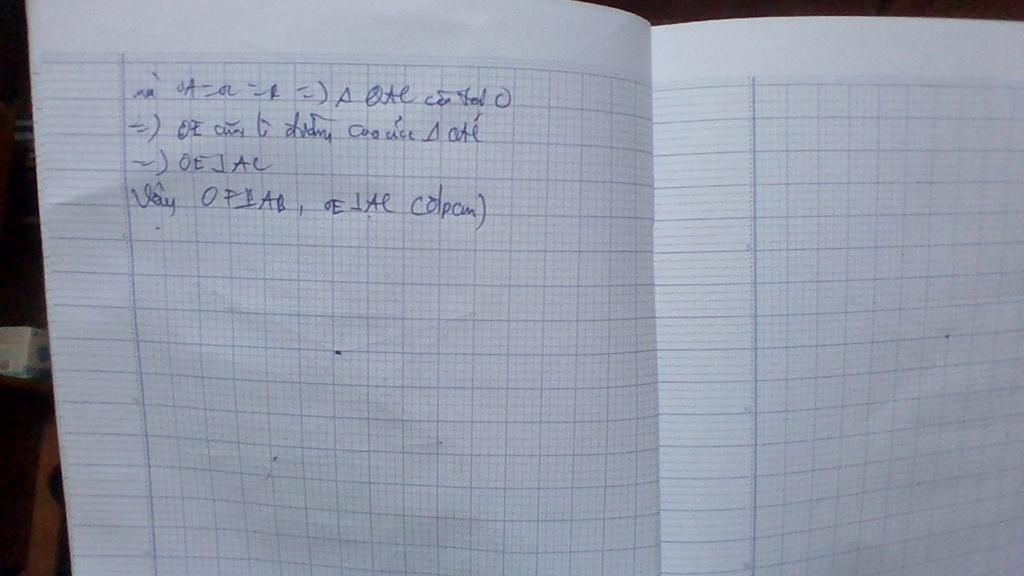 mà OA = OC = R => Δ OAC cân tại O
=> OE cũng là đường cao của Δ OAC
=> OE ⊥ AC
Vậy OF ⊥ AB, OE ⊥ AC (đpcm)